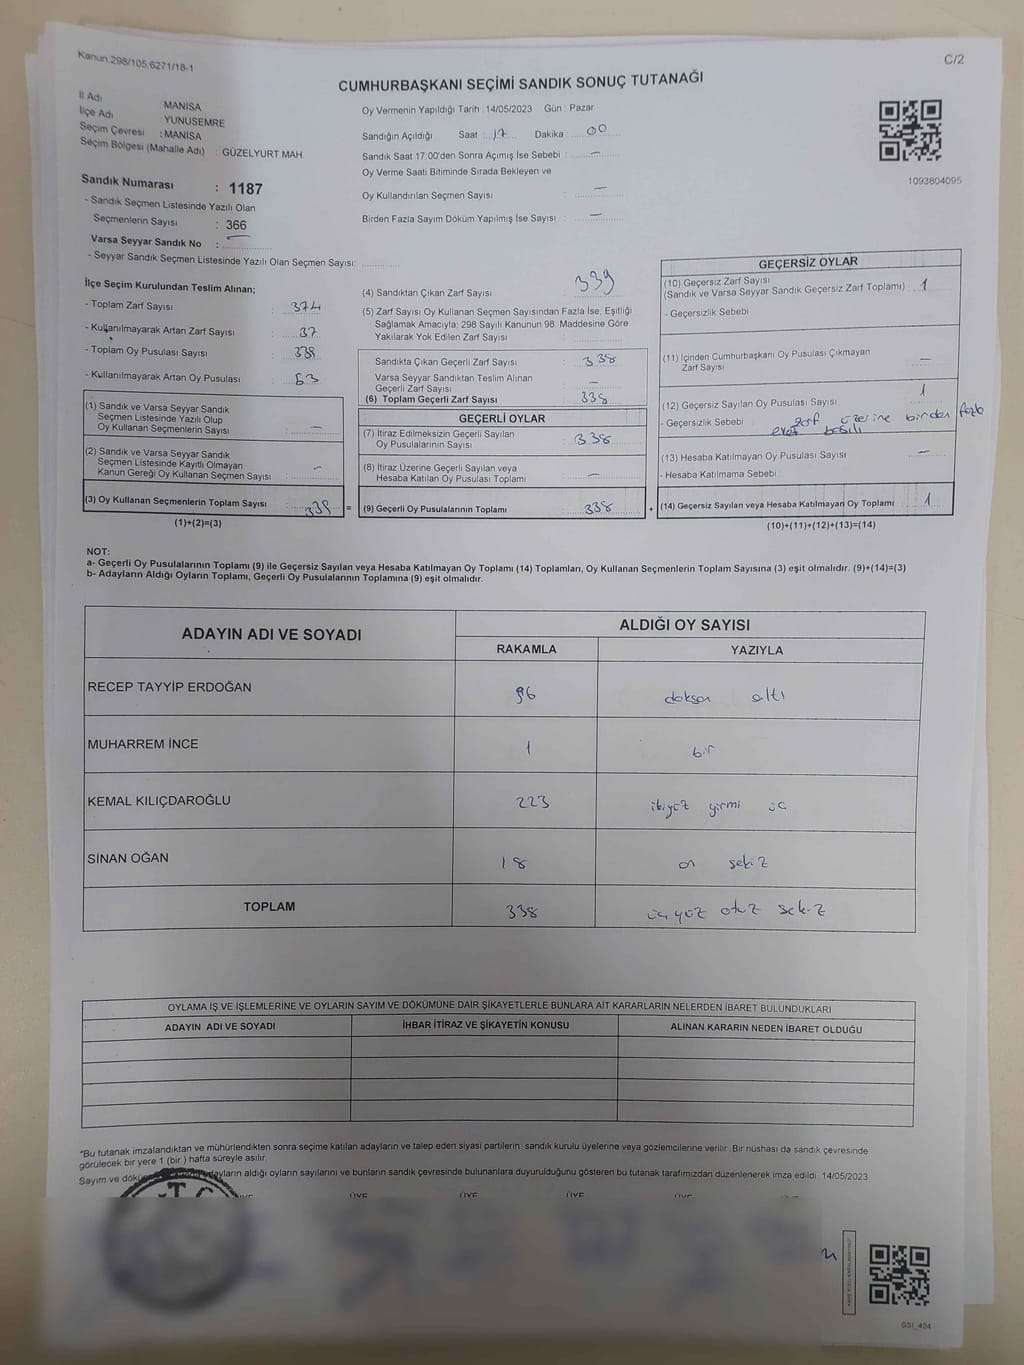 Kanun:298/105,6271/18-1
C/2
CUMHURBAŞKANI SEÇİMİ SANDIK SONUÇ TUTANAĞI
İl Adı MANİSA
İlçe Adı : YUNUSEMRE
Seçim Çevresi : MANİSA
Seçim Bölgesi (Mahalle Adı) : GÜZELYURT MAH.
Sandık Numarası : 1187
- Sandık Seçmen Listesinde Yazılı Olan
Seçmenlerin Sayısı : 366
Varsa Seyyar Sandık No :
- Seyyar Sandık Seçmen Listesinde Yazılı Olan Seçmen Sayısı:
Oy Vermenin Yapıldığı Tarih : 14/05/2023 Gün : Pazar
Sandığın Açıldığı Saat : 17 Dakika : 00
Sandık Saat 17:00'den Sonra Açımış İse Sebebi : —
Oy Verme Saati Bitiminde Sırada Bekleyen ve
Oy Kullandırılan Seçmen Sayısı : —
Birden Fazla Sayım Döküm Yapılmış İse Sayısı : —
1093804095
İlçe Seçim Kurulundan Teslim Alınan;
- Toplam Zarf Sayısı : 374
- Kullanılmayarak Artan Zarf Sayısı : 37
- Toplam Oy Pusulası Sayısı :
- Kullanılmayarak Artan Oy Pusulası : 63
(1) Sandık ve Varsa Seyyar Sandık
Seçmen Listesinde Yazılı Olup
Oy Kullanan Seçmenlerin Sayısı : —
(2) Sandık ve Varsa Seyyar Sandık
Seçmen Listesinde Kayıtlı Olmayan
Kanun Gereği Oy Kullanan Seçmen Sayısı : —
(3) Oy Kullanan Seçmenlerin Toplam Sayısı : 339
(1)+(2)=(3)
(4) Sandıktan Çıkan Zarf Sayısı : 339
(5) Zarf Sayısı Oy Kullanan Seçmen Sayısından Fazla İse, Eşitliği
Sağlamak Amacıyla; 298 Sayılı Kanunun 98. Maddesine Göre
Yakılarak Yok Edilen Zarf Sayısı :
Sandıkta Çıkan Geçerli Zarf Sayısı : 338
Varsa Seyyar Sandıktan Teslim Alınan
Geçerli Zarf Sayısı : —
(6) Toplam Geçerli Zarf Sayısı : 338
GEÇERLİ OYLAR
(7) İtiraz Edilmeksizin Geçerli Sayılan
Oy Pusulalarının Sayısı : 338
(8) İtiraz Üzerine Geçerli Sayılan veya
Hesaba Katılan Oy Pusulası Toplamı : —
= (9) Geçerli Oy Pusulalarının Toplamı : 338
GEÇERSİZ OYLAR
(10) Geçersiz Zarf Sayısı
(Sandık ve Varsa Seyyar Sandık Geçersiz Zarf Toplamı) : 1
- Geçersizlik Sebebi
(11) İçinden Cumhurbaşkanı Oy Pusulası Çıkmayan
Zarf Sayısı : —
(12) Geçersiz Sayılan Oy Pusulası Sayısı : 1
- Geçersizlik Sebebi : zarf üzerine birden fazla
evet basılı
(13) Hesaba Katılmayan Oy Pusulası Sayısı : —
- Hesaba Katılmama Sebebi :
+ (14) Geçersiz Sayılan veya Hesaba Katılmayan Oy Toplamı : 1
(10)+(11)+(12)+(13)=(14)
NOT:
a- Geçerli Oy Pusulalarının Toplamı (9) ile Geçersiz Sayılan veya Hesaba Katılmayan Oy Toplamı (14) Toplamları, Oy Kullanan Seçmenlerin Toplam Sayısına (3) eşit olmalıdır. (9)+(14)=(3)
b- Adayların Aldığı Oyların Toplamı, Geçerli Oy Pusulalarının Toplamına (9) eşit olmalıdır.
ADAYIN ADI VE SOYADI ALDIĞI OY SAYISI
RAKAMLA YAZIYLA
RECEP TAYYİP ERDOĞAN 96 doksan altı
MUHARREM İNCE 1 bir
KEMAL KILIÇDAROĞLU 223 ikiyüz yirmi üç
SİNAN OĞAN 18 on sekiz
TOPLAM 338 üçyüz otuz sekiz
OYLAMA İŞ VE İŞLEMLERİNE VE OYLARIN SAYIM VE DÖKÜMÜNE DAİR ŞİKAYETLERLE BUNLARA AİT KARARLARIN NELERDEN İBARET BULUNDUKLARI
ADAYIN ADI VE SOYADI İHBAR İTİRAZ VE ŞİKAYETİN KONUSU ALINAN KARARIN NEDEN İBARET OLDUĞU
*Bu tutanak imzalandıktan ve mühürlendikten sonra seçime katılan adayların ve talep eden siyasi partilerin sandık kurulu üyelerine veya gözlemcilerine verilir. Bir nüshası da sandık çevresinde
görülecek bir yere 1 (bir ) hafta süreyle asılır.
Sayım ve adayların aldığı oyların sayılarını ve bunların sandık çevresinde bulunanlara duyurulduğunu gösteren bu tutanak tarafımızdan düzenlenerek imza edildi. 14/05/2023
T.C.
ÜYE ÜYE ÜYE ÜYE
GSI_404